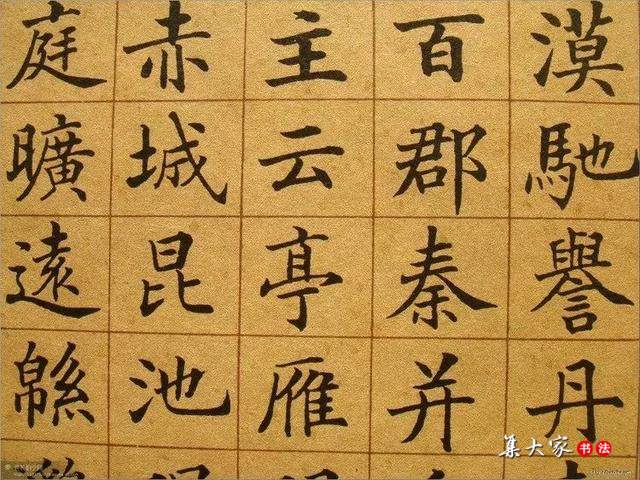 漠馳譽丹
百郡秦并
主云亭雁
赤城昆池
庭曠遠緜
集大家书法